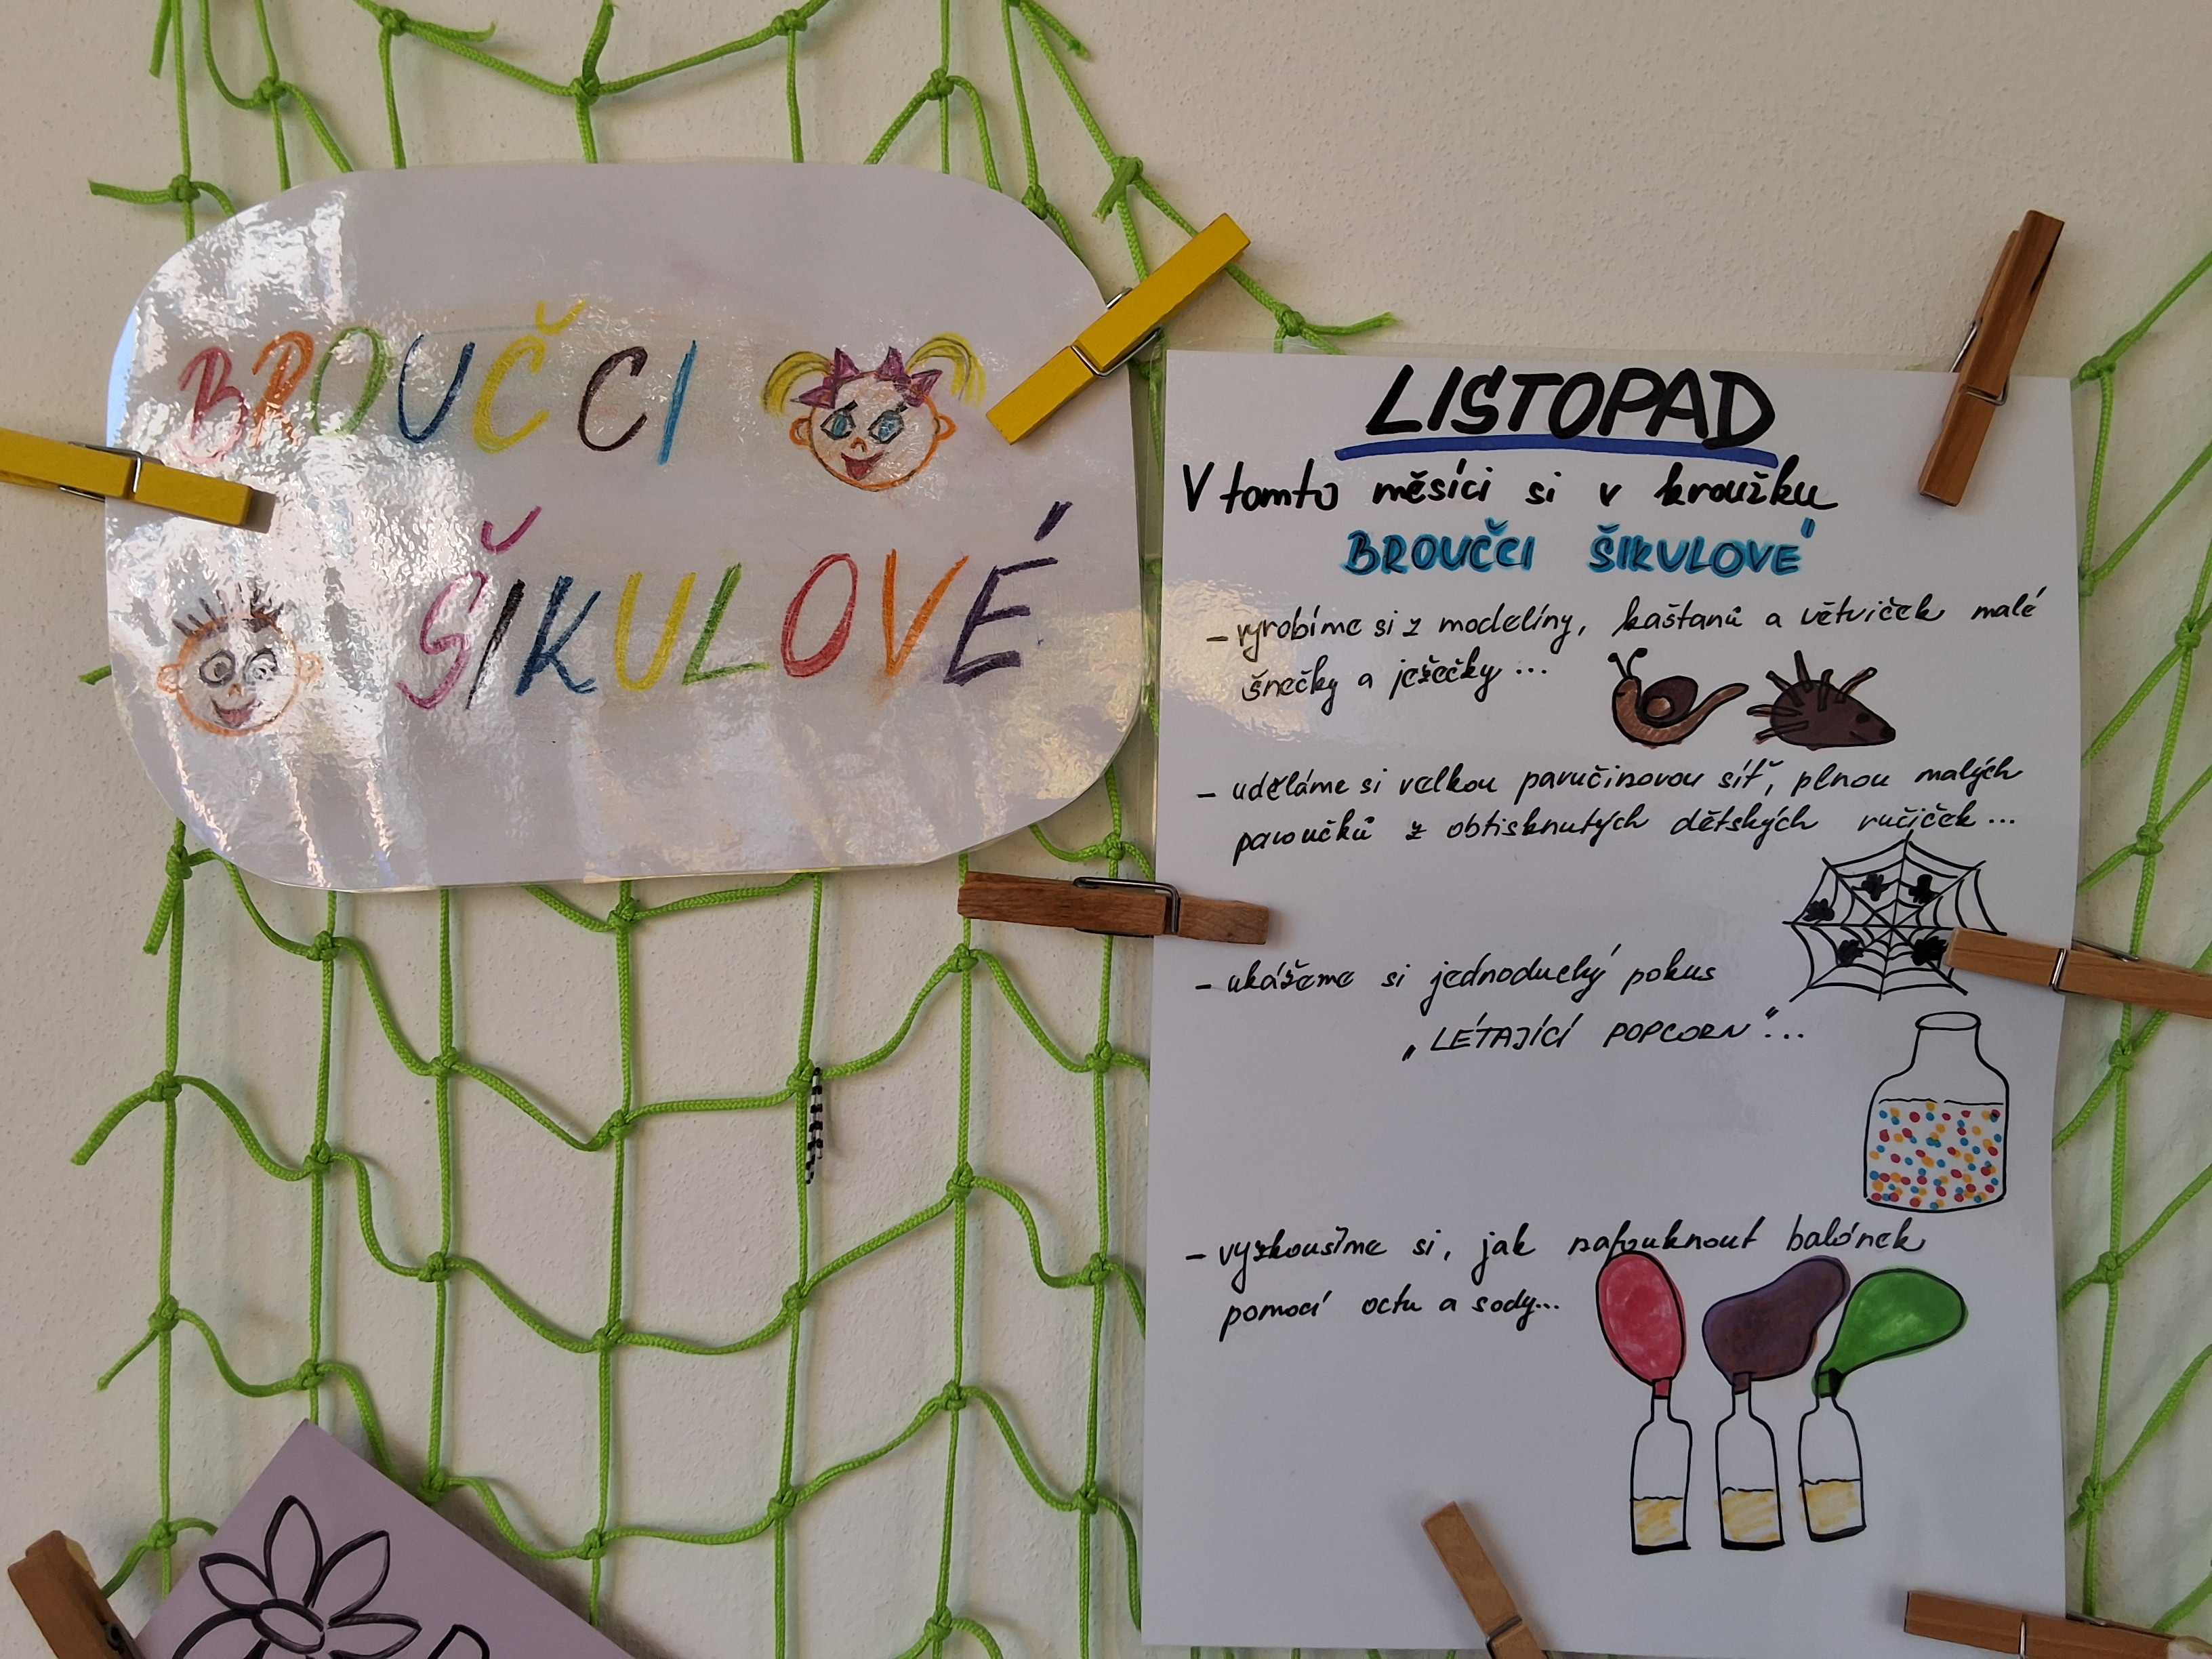 BROUČCI
ŠIKULOVÉ
LISTOPAD
V tomto měsíci si v kroužku
BROUČCI ŠIKULOVÉ"
- vyrobíme si z modelíny, kaštanů a větviček malé
šnečky a ježečky ...
- uděláme si velkou pavučinovou síť, plnou malých
pavoučků z obtisknutých dětských ručiček...
- ukážeme si jednoduchý pokus
„LÉTAJÍCÍ POPCORN"...
- vyzkoušíme si, jak nafouknout balónek
pomocí octa a sody...